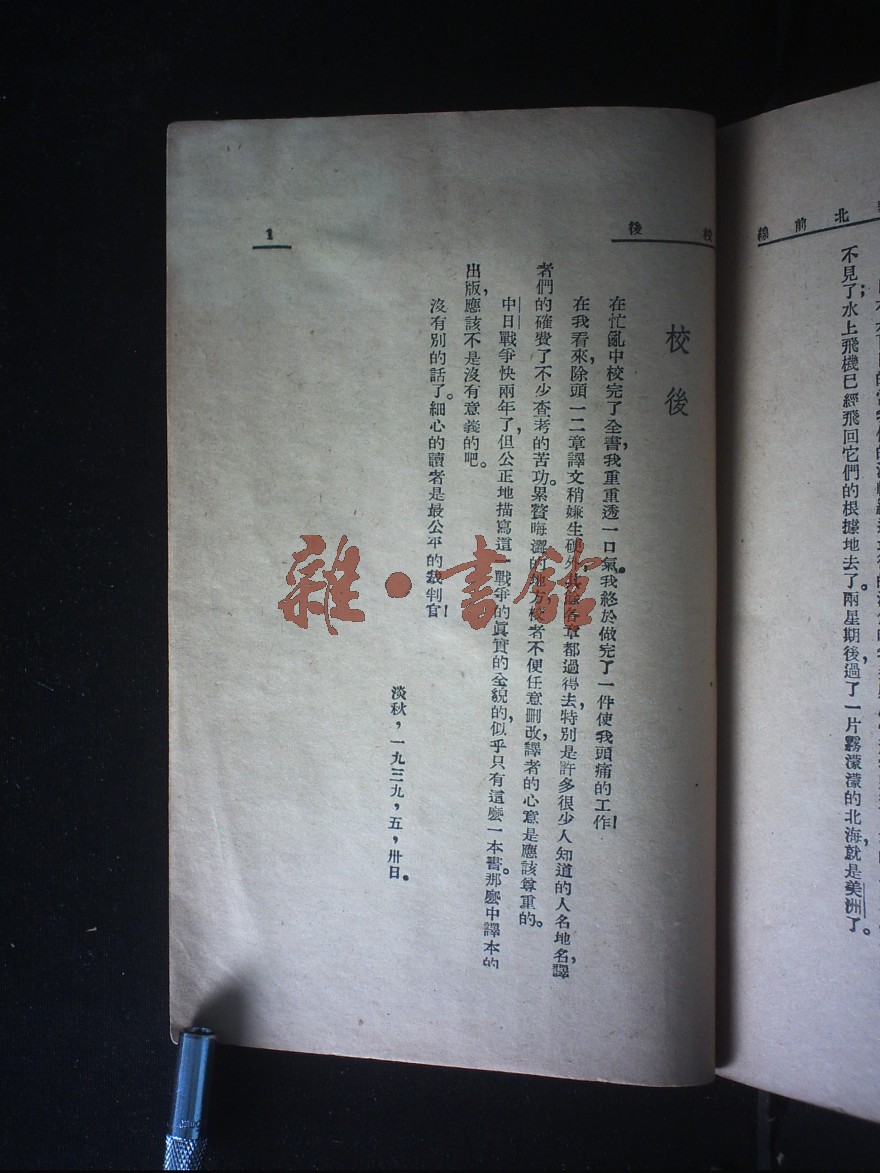 不見了；水上飛機已經飛回它們的根據地去了。兩星期後，過了一片霧濛濛的北海，就是美洲了。
北前線
校後
校後
在忙亂中校完了全書，我重重透一口氣。我終於做完了一件使我頭痛的工作！
在我看來，除頭一二章譯文稍嫌生硬外，其餘各章都過得去，特別是許多很少人知道的人名地名，譯
者們的確費了不少查考的苦功。累贅晦澀的地方，校者不便任意刪改，譯者的心意是應該尊重的。
中日戰爭快兩年了，但公正地描寫這一戰爭的眞實的全貌的，似乎只有這麽一本書。那麽中譯本的
出版，應該不是沒有意義的吧。
沒有別的話了。細心的讀者是最公平的裁判官！
淡秋，一九三九，五，卅日。
1
雜·書館